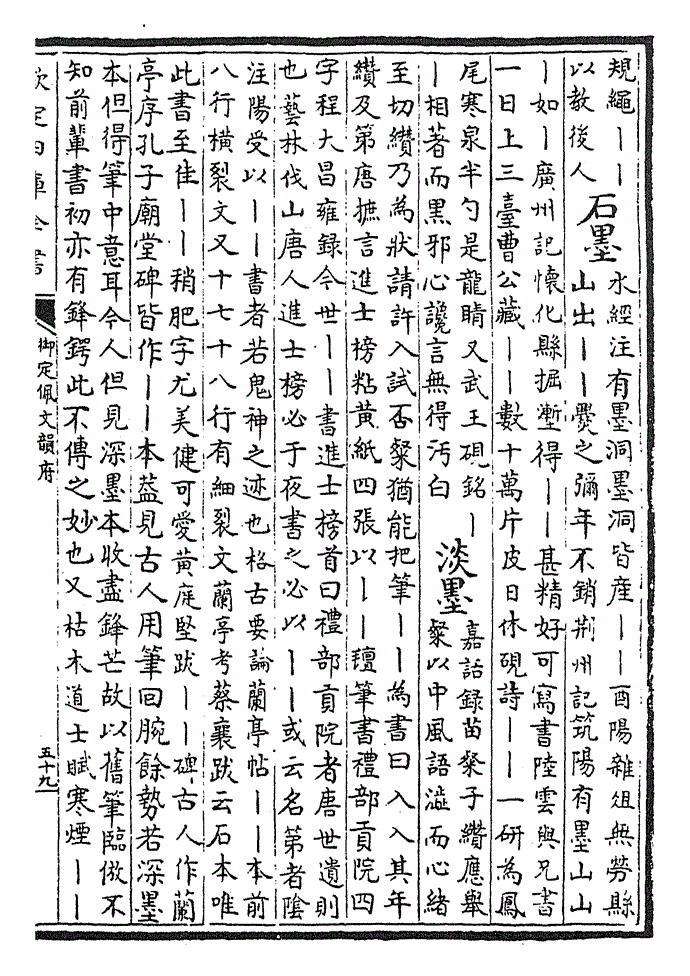 規繩丨丨
以教後人
石墨
水經注有墨洞墨洞皆産丨丨酉陽雜俎無勞縣
山出丨丨爨之彌年不銷荆州記筑陽有墨山山
丨如丨廣州記懷化縣掘塹得丨丨甚精好可寫書陸雲與兄書
一日上三臺曹公藏丨丨數十萬片皮日休硯詩丨丨一研為鳳
尾寒泉半勺是龍睛又武王硯銘丨
丨相著而黑邪心讒言無得汚白
淡墨
嘉話録苗粲子纘應舉
粲以中風語澁而心緒
至切纘乃為狀請許入試否粲猶能把筆丨丨為書曰入入其年
纘及第唐摭言進士榜粘黄紙四張以丨丨氊筆書禮部貢院四
字程大昌雍録今世丨丨書進士榜首曰禮部貢院者唐世遺則
也藝林伐山唐人進士榜必于夜書之必以丨丨或云名第者陰
注陽受以丨丨書者若鬼神之迹也格古要論蘭亭帖丨丨本前
八行横裂文又十七十八行有細裂文蘭亭考蔡襄跋云石本唯
此書至佳丨丨稍肥字尤美健可愛黄庭堅跋丨丨碑古人作蘭
亭序孔子廟堂碑皆作丨丨本葢見古人用筆回腕餘勢若深墨
本但得筆中意耳今人但見深墨本收盡鋒芒故以舊筆臨倣不
知前輩書初亦有鋒鍔此不傳之妙也又枯木道士賦寒煙丨丨
欽定四庫全書
御定佩文韻府
五十九